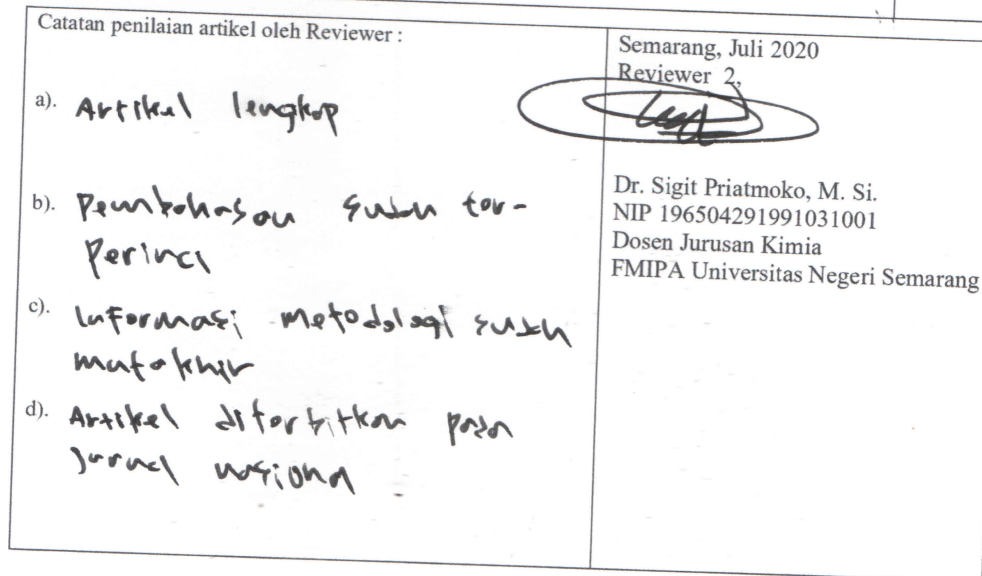 Catatan penilaian artikel oleh Reviewer :
a). Artikel lengkap
b). Pembahasan sudah ter-
perinci
c). Informasi metodologi sudah
mutakhir
d). Artikel diterbitkan pada
jurnal nasional
Semarang, Juli 2020
Reviewer 2,
Dr. Sigit Priatmoko, M. Si.
NIP 196504291991031001
Dosen Jurusan Kimia
FMIPA Universitas Negeri Semarang